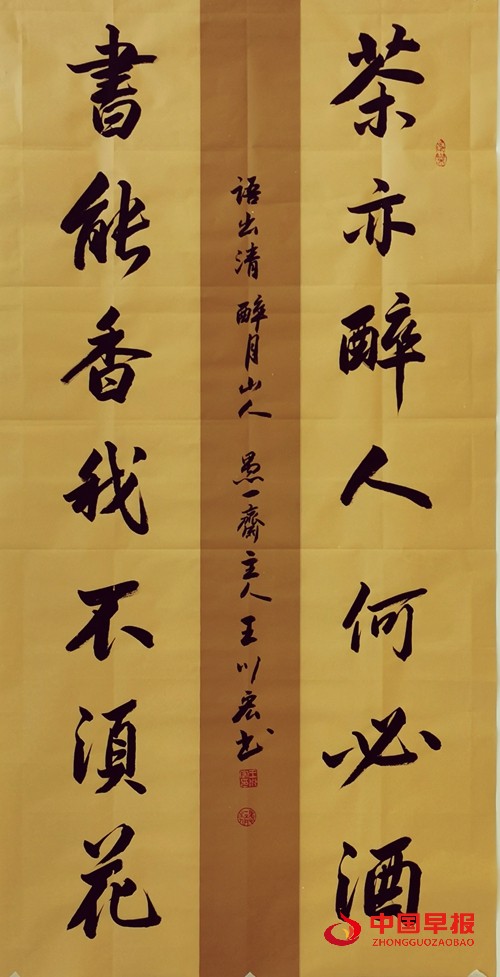 茶亦醉人何必酒
書能香我不須花
语出清 醉月山人 愚一齋主人王川宏书
中国早报
ZHONGGUOZAOBAO